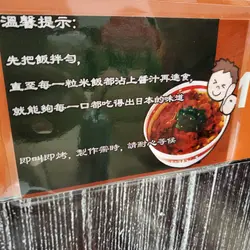 溫馨提示:
先把飯拌勻,
直至每一粒米飯都沾上醬汁再進食,
就能夠每一口都吃得出日本的味道
即叫即烤,製作需時,請耐心等候